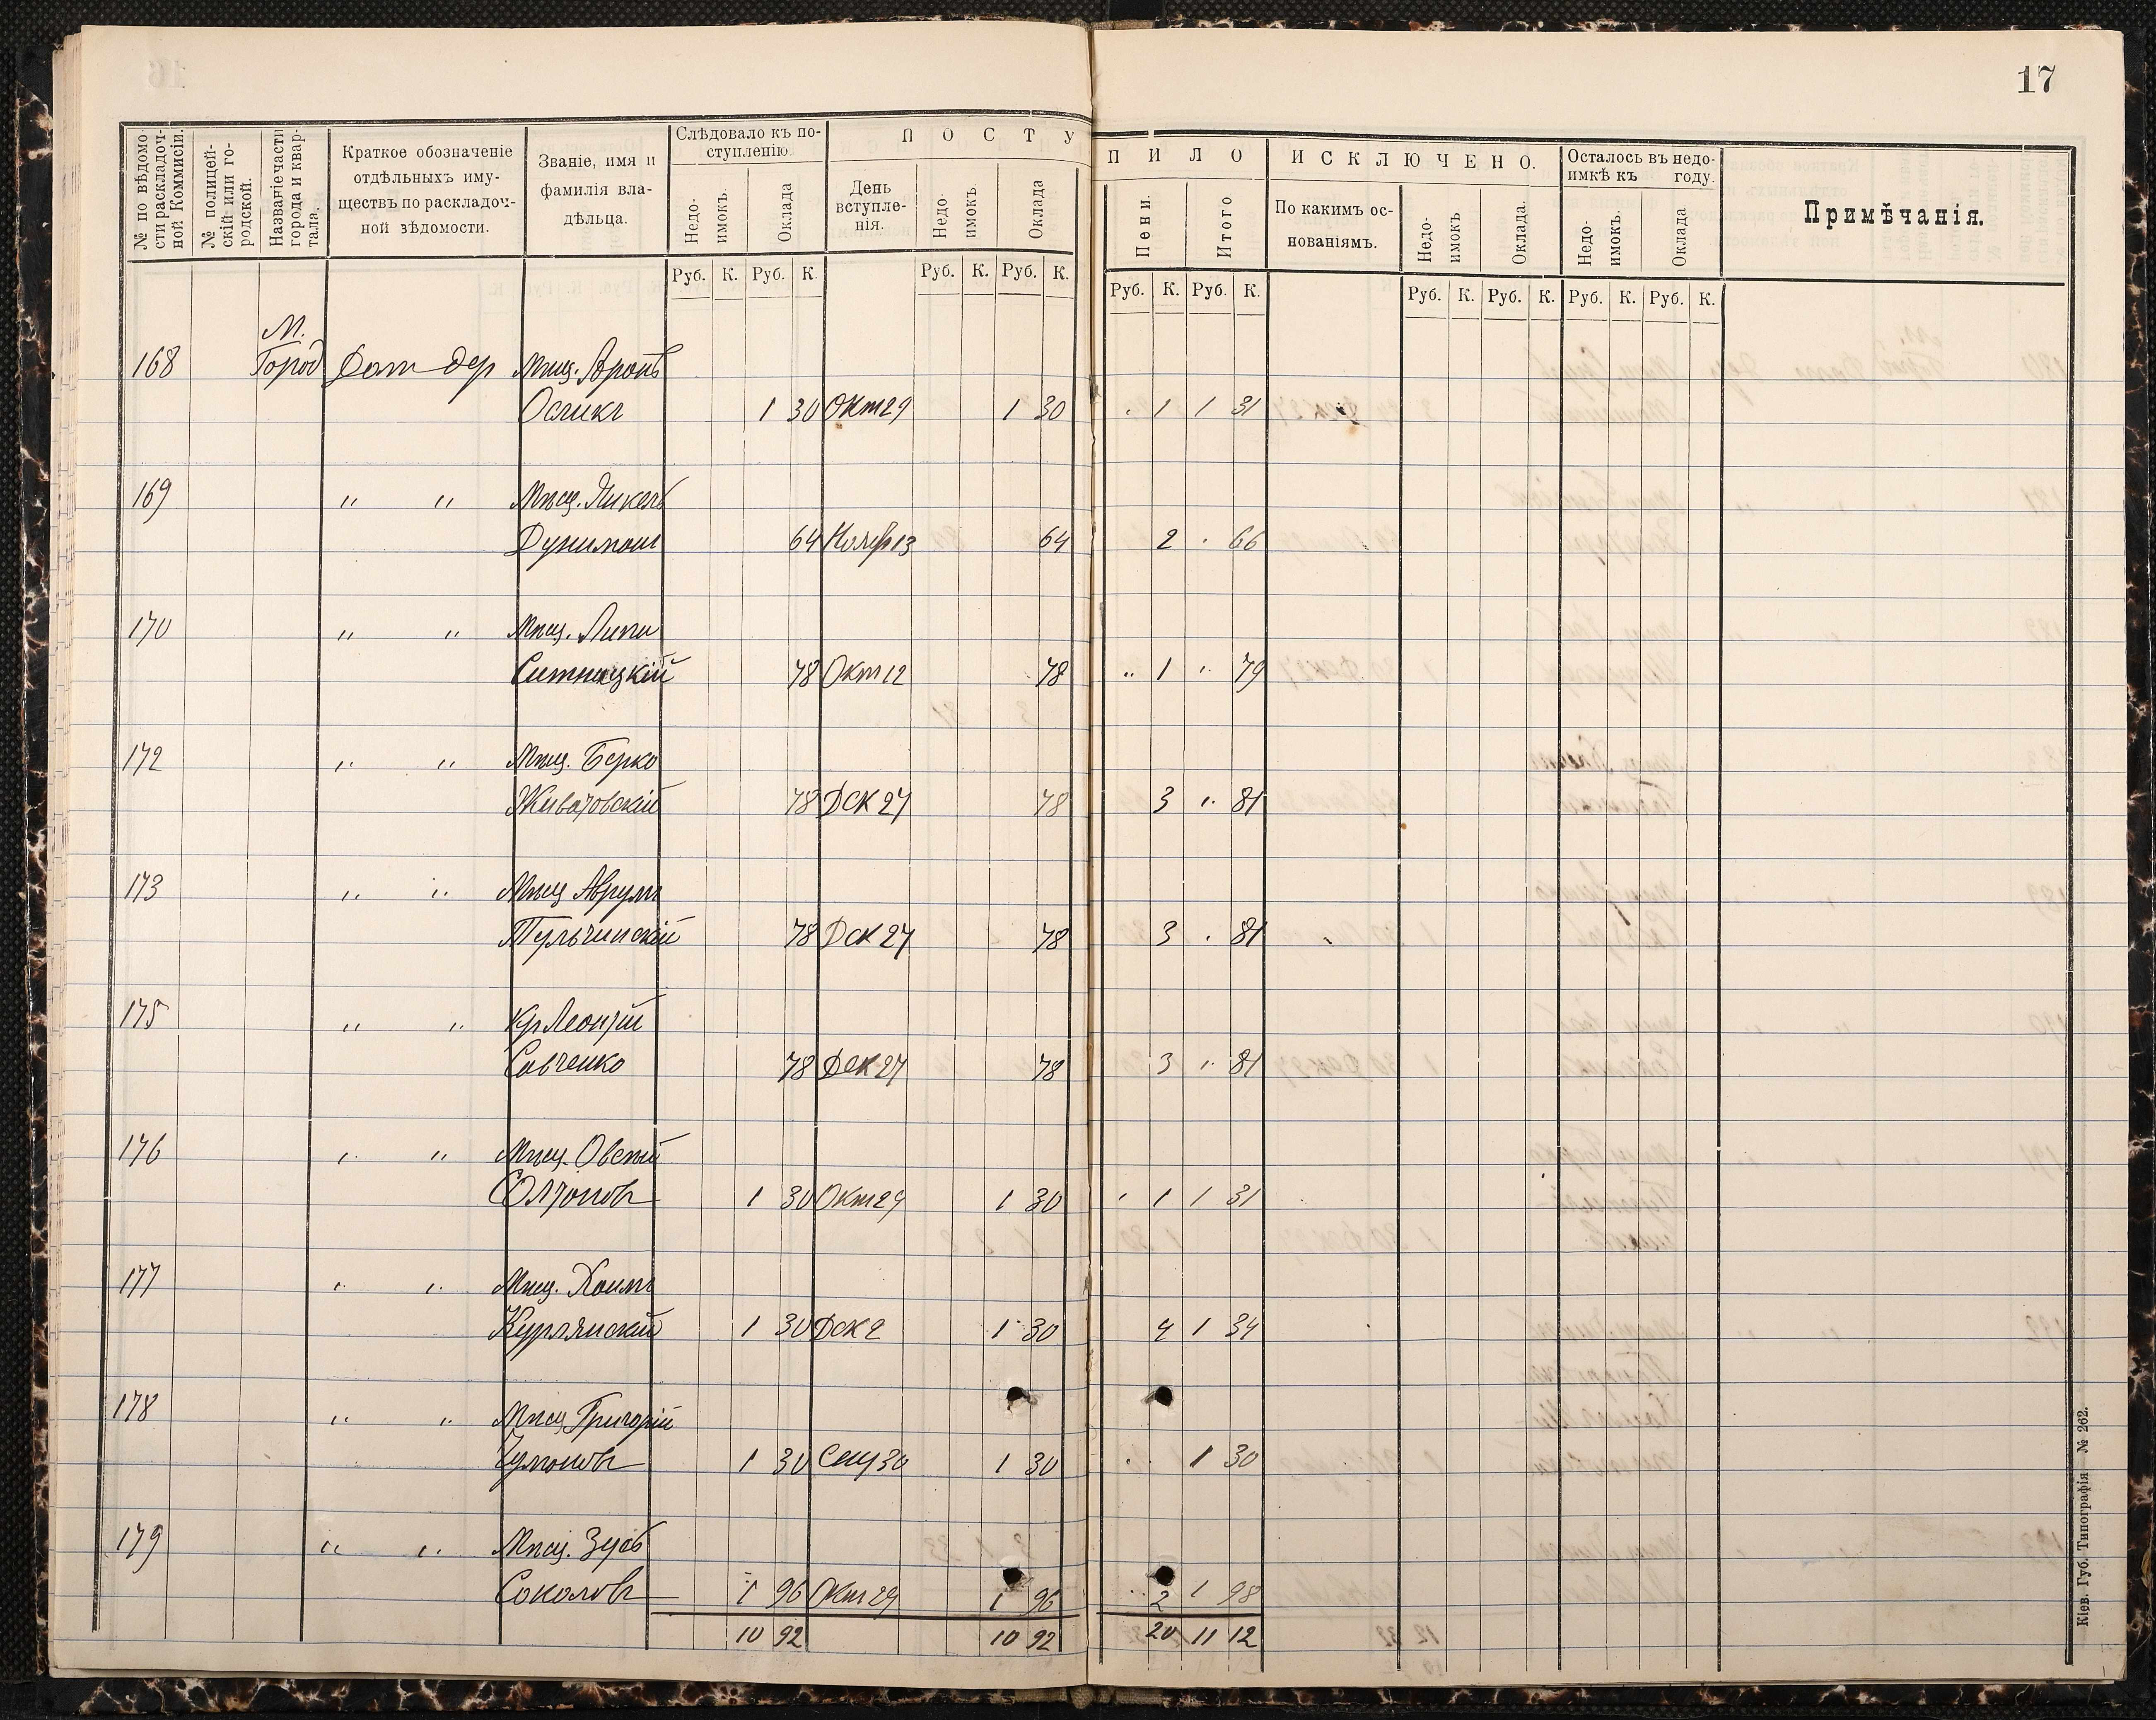 17
№ по вѣдомости раскладочной Коммисіи.
№ полицейскій или городской.
Названіе части города и квартала.
Краткое обозначеніе отдѣльныхъ имуществъ по раскладочной зѣдомости.
Званіе, имя и фамилія владѣльца.
Слѣдовало къ поступленію
Недоимокъ.
Оклада
ПОСТУПИЛО
День вступленія.
Недоимокъ
Оклада
Пени.
Итого
ИСКЛЮЧЕНО.
По какимъ основаніямъ.
Недоимокъ
Оклада.
Осталось въ недоимкѣ къ году.
Недоимокъ.
Оклада
Примѣчанія.
Руб. К. Руб. К. Руб. К. Руб. К. Руб. К. Руб. К. Руб. К. Руб. К. Руб. К. Руб. К.
М.
168 Город Дом дер Мѣщ. Аронъ
1 30 Окт 29 1 30 1 1 31
169 " " Мѣщ.
64 Нояб 13 64 2 66
170 " " Мѣщ. Липа
Ситницкій 78 Окт 12 78 " 1 " 79
172 " " Мѣщ. Берко
Животовскій 78 Дек 27 78 3 " 81
173 " " Мѣщ Аврумъ
Тульчинскій 78 Дек 27 78 3 81
175 " " Кр Леонтій
Савченко 78 Дек 27 78 3 " 81
176 " " Мѣщ. Овсѣй
1 30 Окт 29 1 30 1 1 31
177 " " Мѣщ. Хаимъ
Курлянскій 1 30 Дек 2 1 30 4 1 34
178 " " Мѣщ Григорій
1 30 Сен 30 1 30 1 30
179 " " Мѣщ. Зусь
Соколовъ 1 96 Окт 29 1 96 2 1 98
10 92 10 92 20 11 12
Кіев. Губ. Типографія № 262.